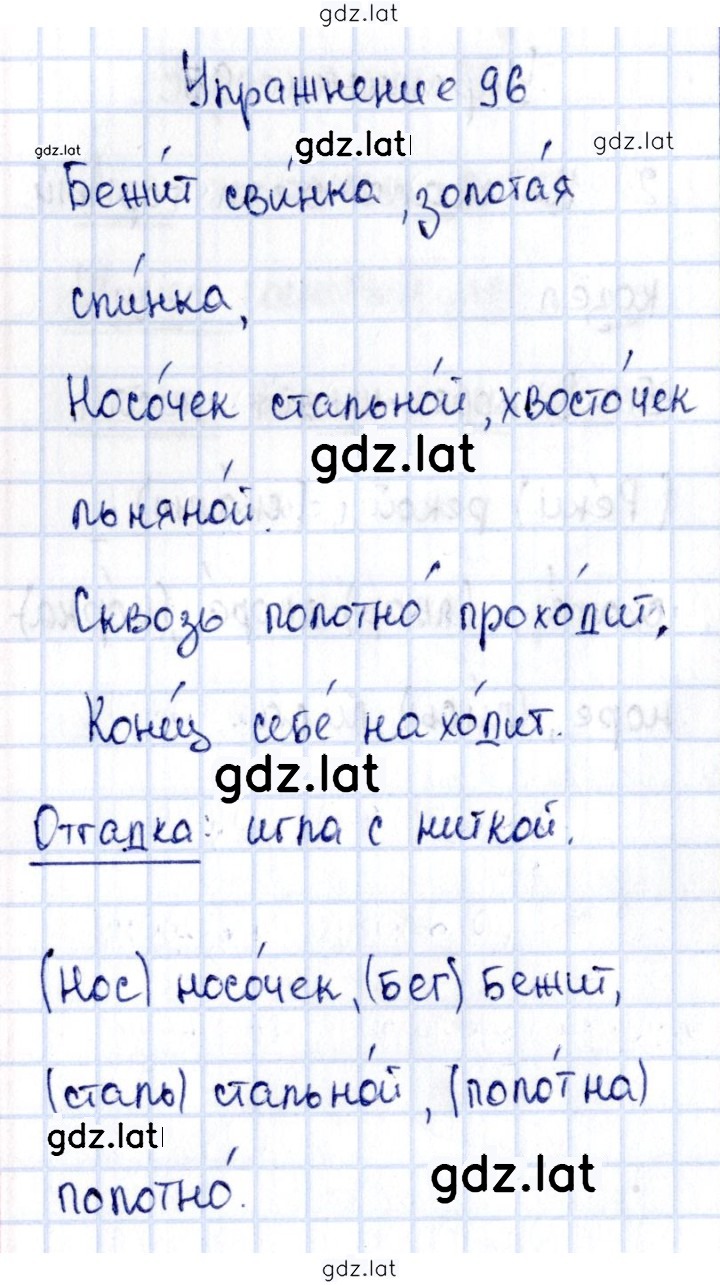 gdz.lat
Упражнение 96
gdz.lat gdz.lat gdz.lat
Бежи́т сви́нка, золота́я
спи́нка,
Носо́чек стально́й, хвосто́чек
gdz.lat
льняно́й.
Сквозь полотно́ прохо́дит,
Коне́ц себе́ нахо́дит.
gdz.lat
Отгадка: игла с ниткой.
(Нос) носо́чек, (бег) Бежит,
(сталь) стально́й, (поло́тна)
gdz.lat gdz.lat
полотно́.
gdz.lat